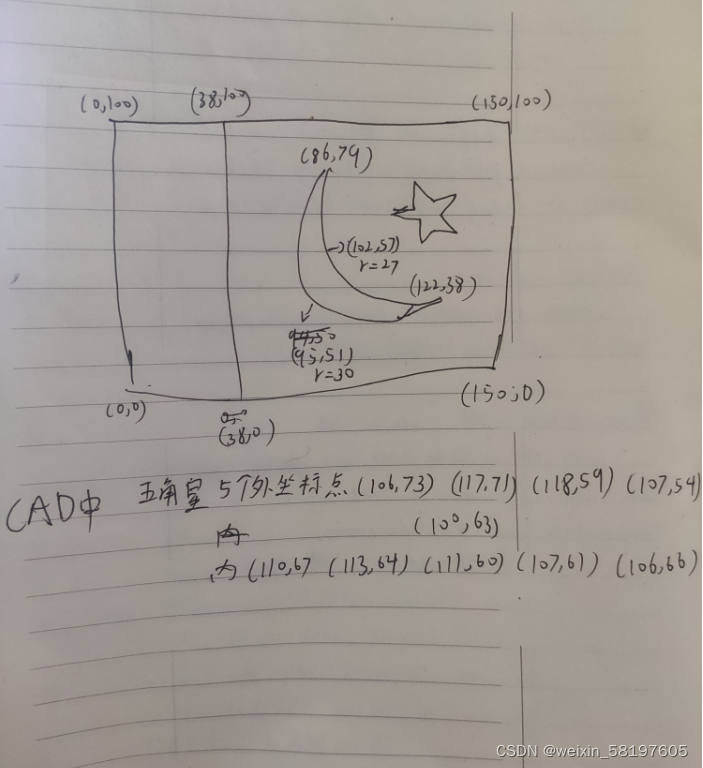 (0,100) (38,100) (150,100)
(86,79)
(102,57)
r=27
(122,38)
(95,51)
r=30
(0,0) (38,0) (150,0)
CAD中 五角星 5个外坐标点 (106,73) (117,71) (118,59) (107,54)
(100,63)
内 (110,67 (113,64) (111,60) (107,61) (106,66)
CSDN @weixin_58197605